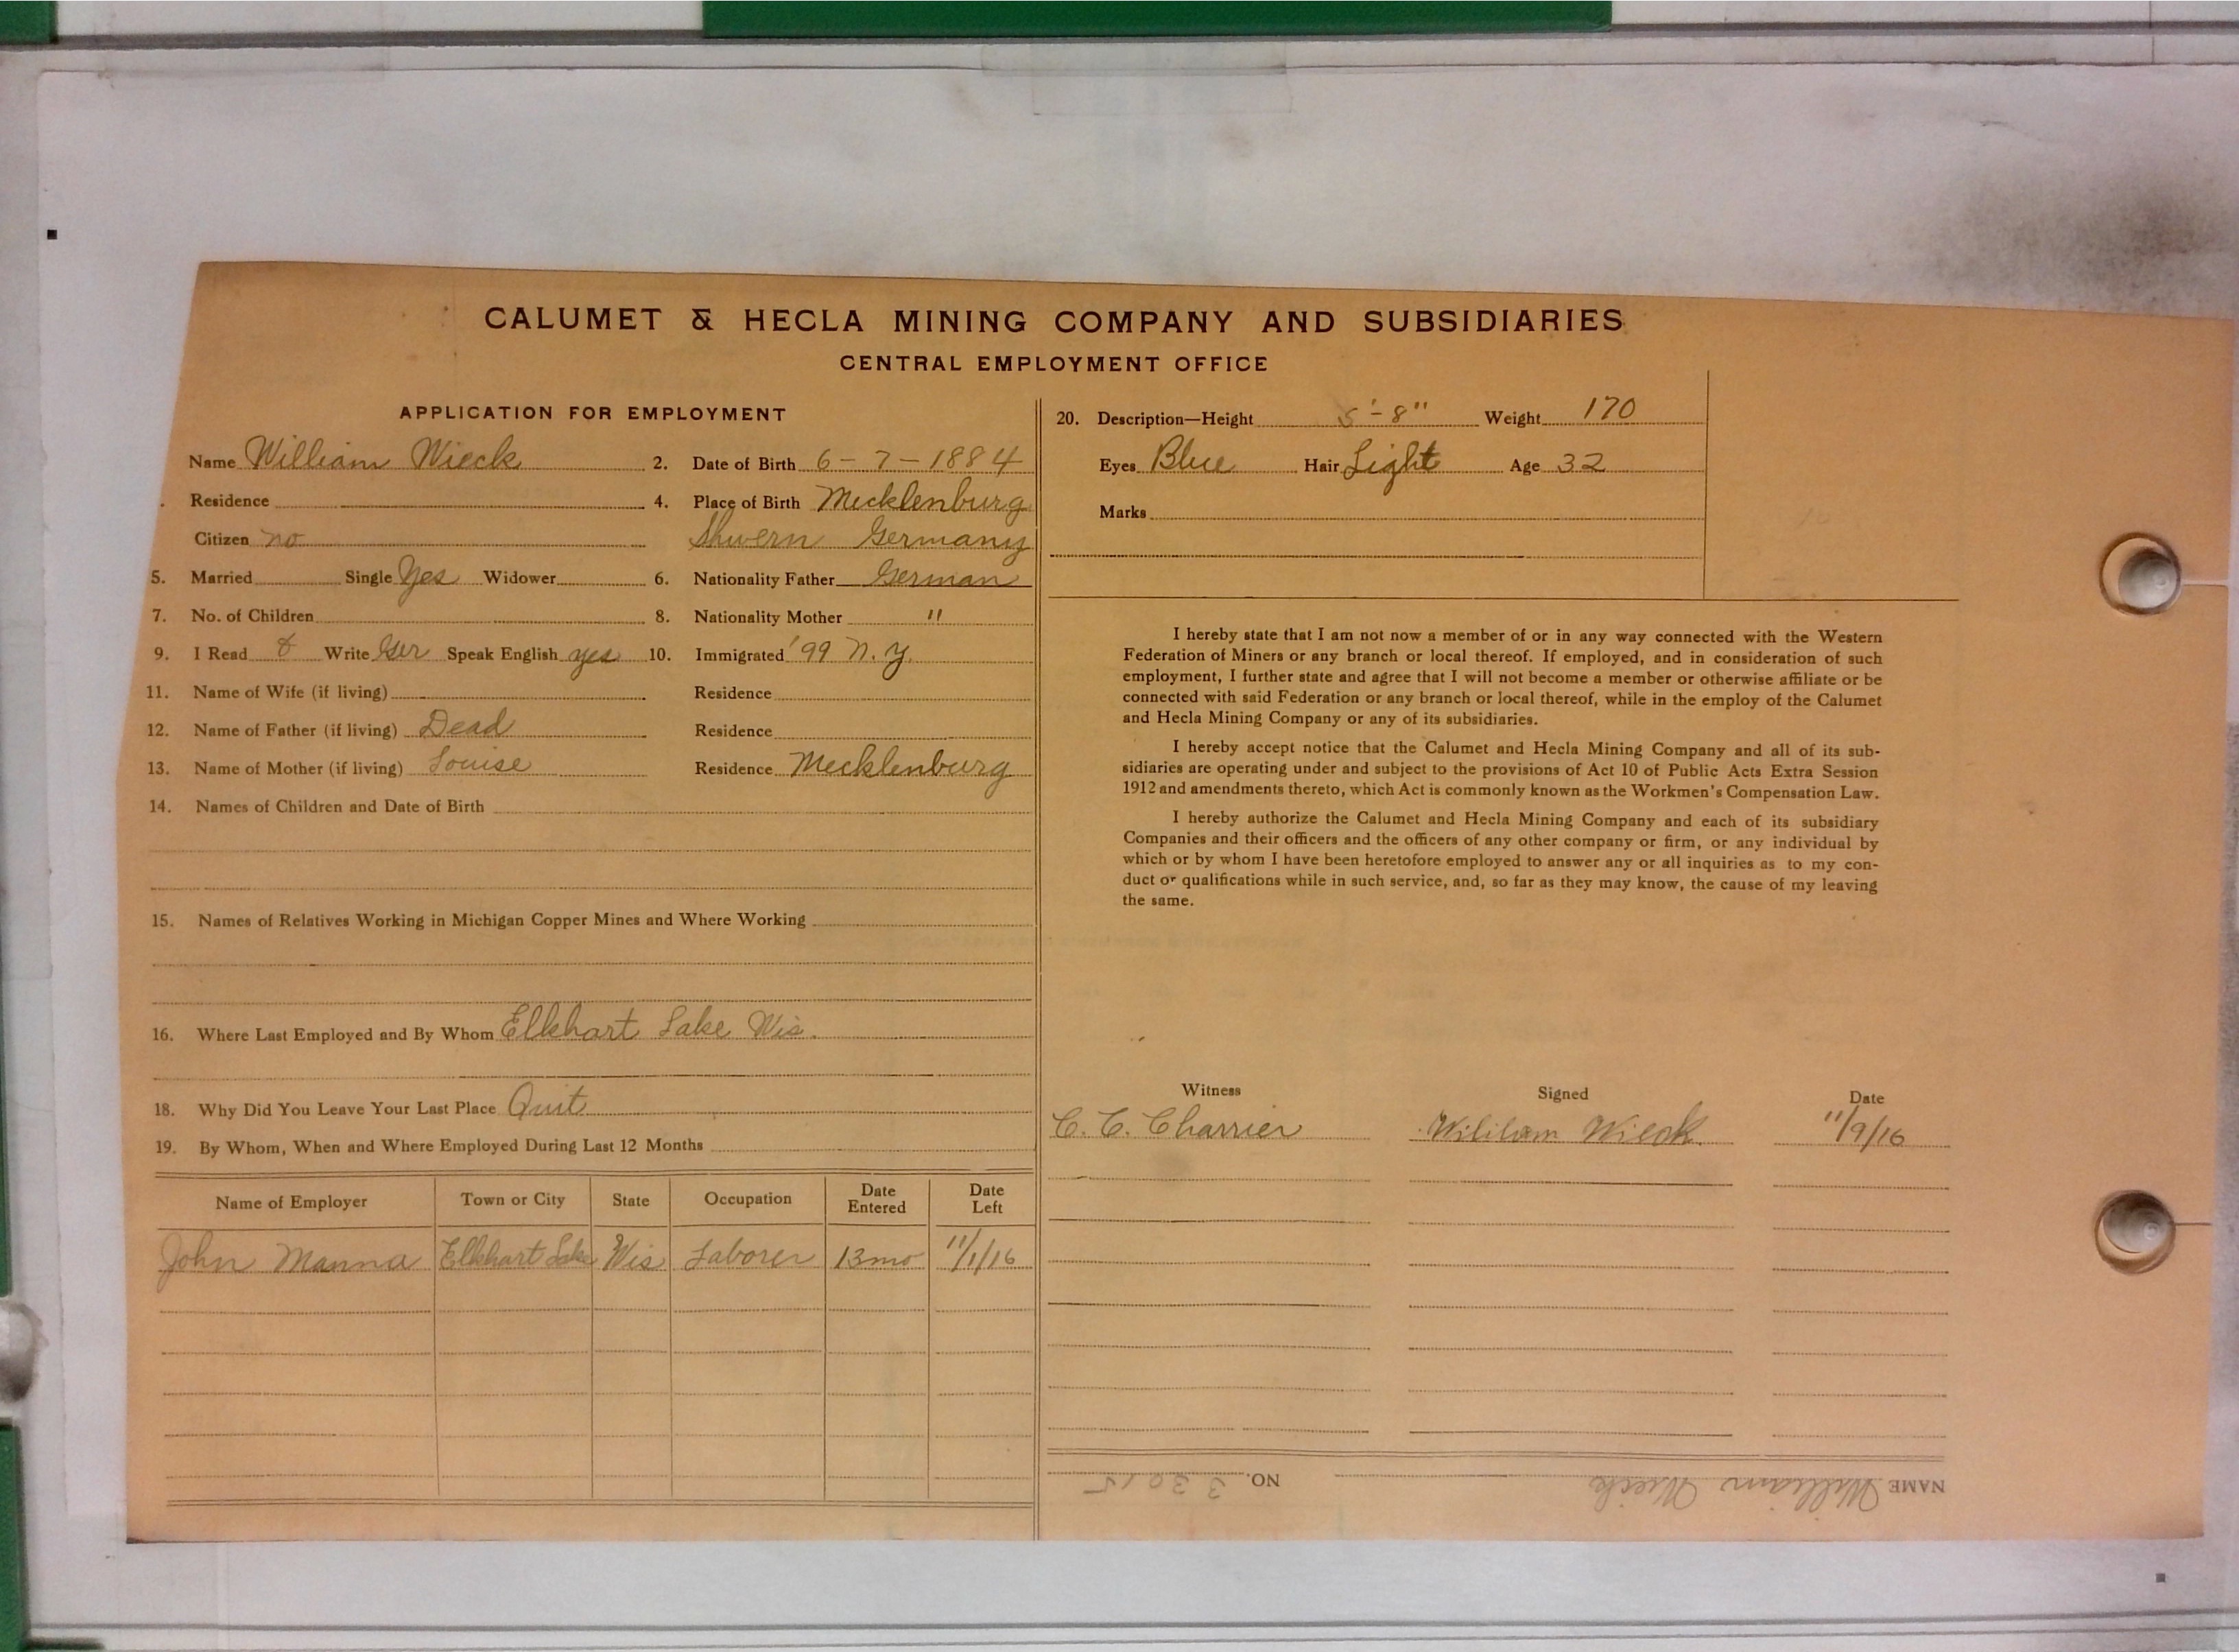 CALUMET & HECLA MINING COMPANY AND SUBSIDIARIES
CENTRAL EMPLOYMENT OFFICE
APPLICATION FOR EMPLOYMENT
Name William Wieck 2. Date of Birth 6-7-1884
Residence 4. Place of Birth Mecklenburg
Citizen no Shwern Germany
5. Married Single Yes Widower 6. Nationality Father German
7. No. of Children 8. Nationality Mother "
9. I Read & Write Ger Speak English yes 10. Immigrated '99 N.Y.
11. Name of Wife (if living) Residence
12. Name of Father (if living) Dead Residence
13. Name of Mother (if living) Louise Residence Mecklenburg
14. Names of Children and Date of Birth
15. Names of Relatives Working in Michigan Copper Mines and Where Working
16. Where Last Employed and By Whom Elkhart Lake Wis.
18. Why Did You Leave Your Last Place Quit
19. By Whom, When and Where Employed During Last 12 Months
Name of Employer Town or City State Occupation Date Entered Date Left
John Manna Elkhart Lake Wis Laborer 13mo 11/1/16
20. Description—Height 5'-8" Weight 170
Eyes Blue Hair Light Age 32
Marks
I hereby state that I am not now a member of or in any way connected with the Western
Federation of Miners or any branch or local thereof. If employed, and in consideration of such
employment, I further state and agree that I will not become a member or otherwise affiliate or be
connected with said Federation or any branch or local thereof, while in the employ of the Calumet
and Hecla Mining Company or any of its subsidiaries.
I hereby accept notice that the Calumet and Hecla Mining Company and all of its sub-
sidiaries are operating under and subject to the provisions of Act 10 of Public Acts Extra Session
1912 and amendments thereto, which Act is commonly known as the Workmen's Compensation Law.
I hereby authorize the Calumet and Hecla Mining Company and each of its subsidiary
Companies and their officers and the officers of any other company or firm, or any individual by
which or by whom I have been heretofore employed to answer any or all inquiries as to my con-
duct or qualifications while in such service, and, so far as they may know, the cause of my leaving
the same.
Witness Signed Date
C. C. Charrier William Wieck 11/9/16
NAME William Wieck NO. 33015